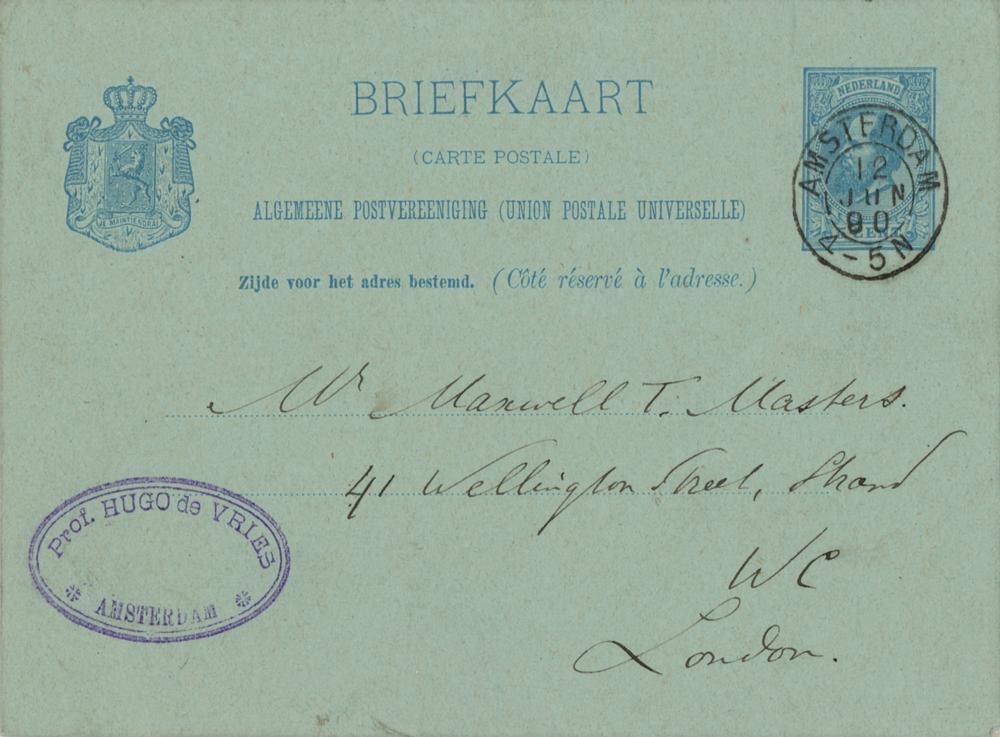 BRIEFKAART
(CARTE POSTALE)
ALGEMEENE POSTVEREENIGING (UNION POSTALE UNIVERSELLE)
Zijde voor het adres bestemd. (Côté réservé à l'adresse.)
JE MAINTIENDRAI
NEDERLAND
CENT
AMSTERDAM
12
JUN
90
4-5N
Mr Maxwell T. Masters.
41 Wellington Street, Strand
WC
London.
Prof. HUGO de VRIES
AMSTERDAM